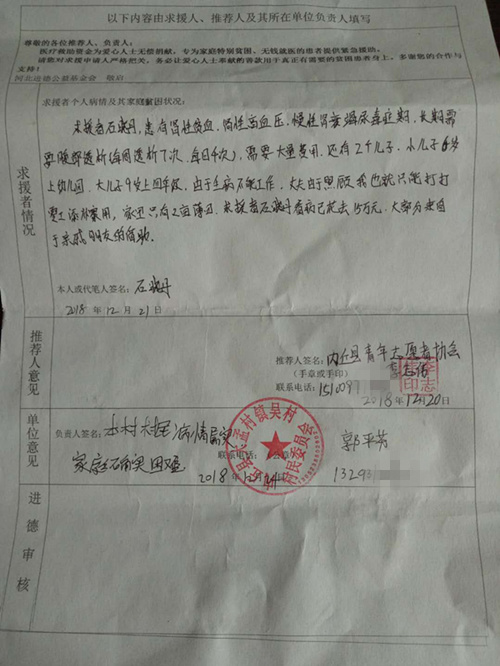 以下内容由求援人、推荐人及其所在单位负责人填写
尊敬的各位推荐人、负责人：
医疗救助资金为爱心人士无偿捐献，专为家庭特别贫困、无钱就医的患者提供紧急援助。
请您对求援申请人严格把关，务必让爱心人士奉献的善款用于真正有需要的贫困患者身上，多谢您的合作与
支持！
河北进德公益基金会 敬启
求援者情况
求援者个人病情及其家庭贫困状况：
求援者石 丹，患有肾性贫血，肾性高血压，慢性肾衰竭尿毒症期，长期需
要腹膜透析（每周透析7次，每日4次），需要大量费用，还有2个儿子，小儿子6岁
上幼儿园，大儿子9岁上四年级，由于生病不能工作，丈夫由于照顾我也就只能打打
零工添补费用，家里只有2亩薄田，求援者石 丹看病已花去15万元，大部分来自
于亲戚朋友的借助。
本人或代笔人签名：石 丹
2018年12月21日
推荐人意见
推荐人签名：内丘县青年志愿者协会
（手章或手印）
联系电话：151009
2018年12月20日
单位意见
负责人签名：本村村民 病情属实
家庭确实困难
联系电话：
郭平芳
2018年12月24日
1329
孟村镇吴村村民委员会
进德审核